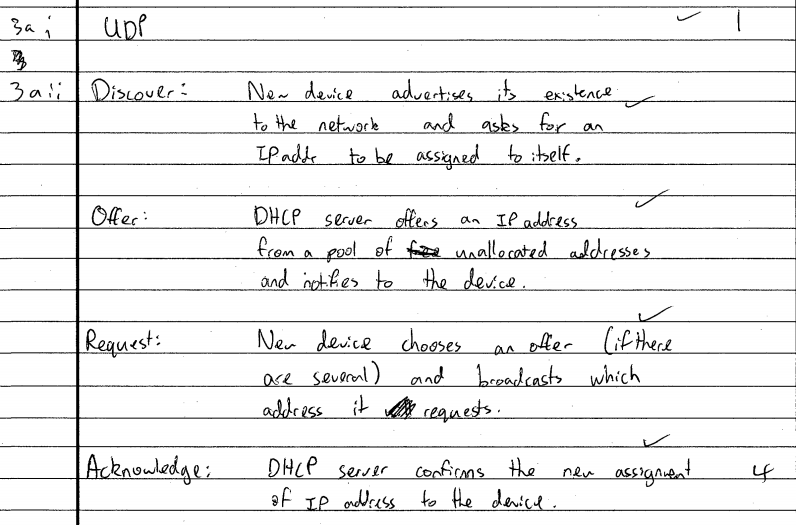 3a i UDP 1
3a ii Discover: New device advertises its existence
to the network and asks for an
IP addr to be assigned to itself.
Offer: DHCP server offers an IP address
from a pool of unallocated addresses
and notifies to the device.
Request: New device chooses an offer (if there
are several) and broadcasts which
address it requests.
Acknowledge: DHCP server confirms the new assignment 4
of IP address to the device.